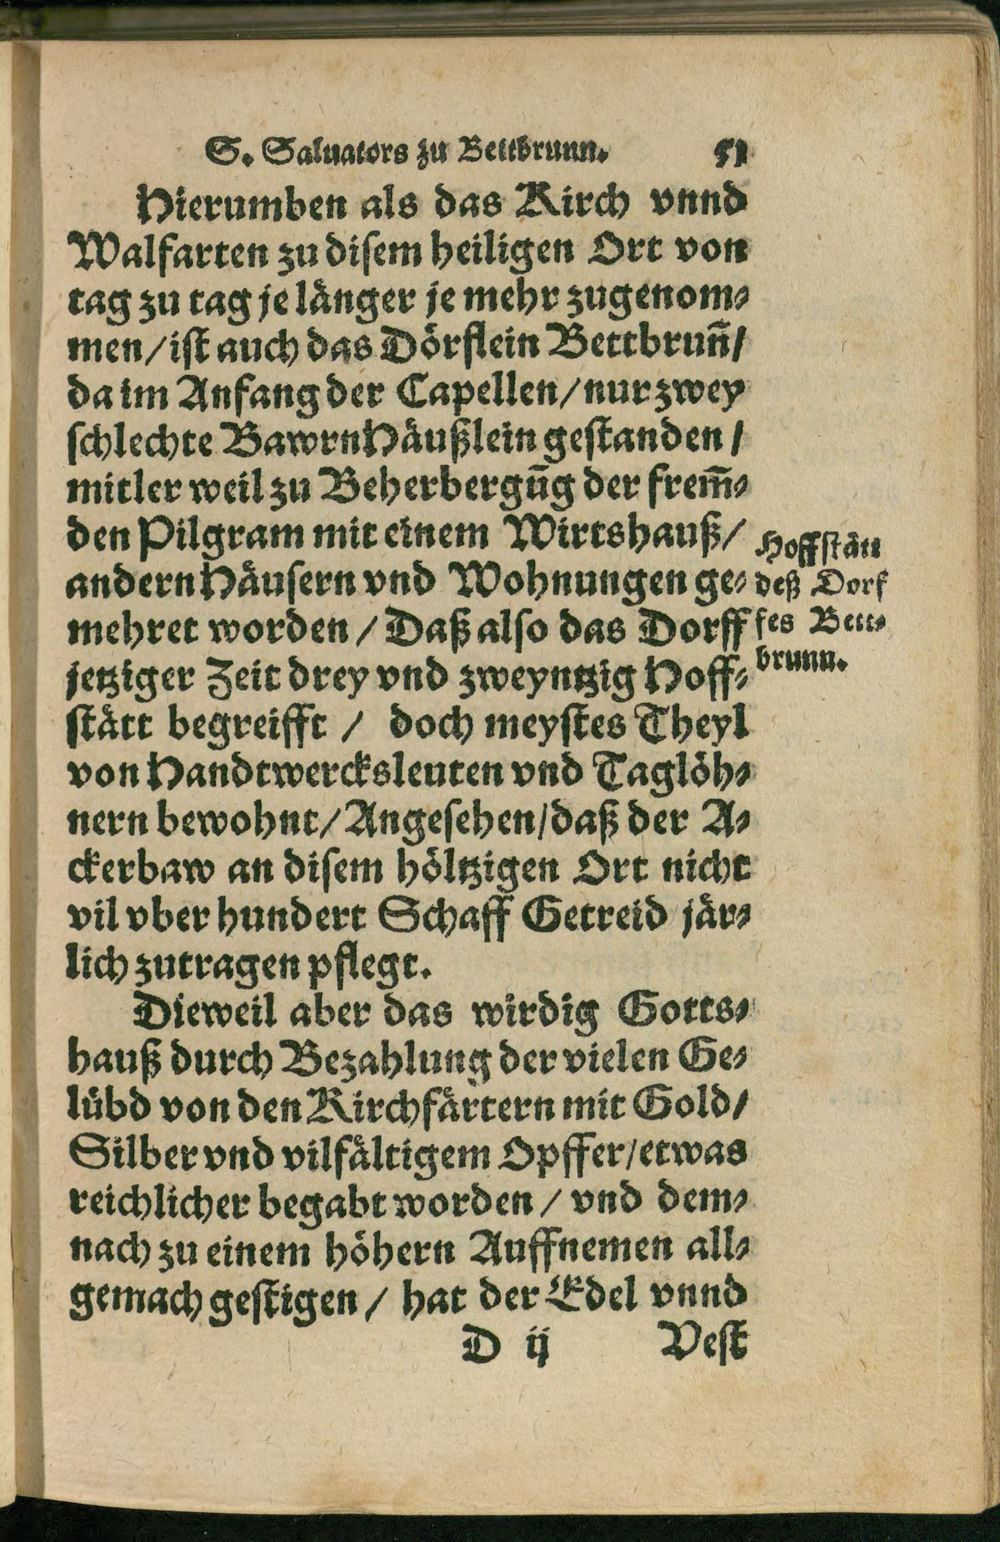 S. Saluators zu Bettbrunn. 51
Hierumben als das Kirch vnnd
Walfarten zu disem heiligen Ort von
tag zu tag je länger je mehr zugenom⸗
men/ist auch das Dörflein Bettbrun̄/
da im Anfang der Capellen/nur zwey
schlechte BawrnHäußlein gestanden/
mitler weil zu Beherbergūg der frem̄⸗
den Pilgram mit einem Wirtshauß/
andern Häusern vnd Wohnungen ge⸗
mehret worden/Daß also das Dorff
jetziger Zeit drey vnd zweyntzig Hoff⸗
stätt begreifft/ doch meystes Theyl
von Handtwercksleuten vnd Taglöh⸗
nern bewohnt/Angesehen/daß der A⸗
ckerbaw an disem höltzigen Ort nicht
vil vber hundert Schaff Getreid jär⸗
lich zutragen pflegt.
Hoffstätt
deß Dorf
fes Bett⸗
brunn.
Dieweil aber das wirdig Gotts⸗
hauß durch Bezahlung der vielen Ge⸗
lübd von den Kirchfärtern mit Gold/
Silber vnd vilfältigem Opffer/etwas
reichlicher begabt worden/vnd dem⸗
nach zu einem höhern Auffnemen all⸗
gemach gestigen/hat der Edel vnnd
D ij Vest